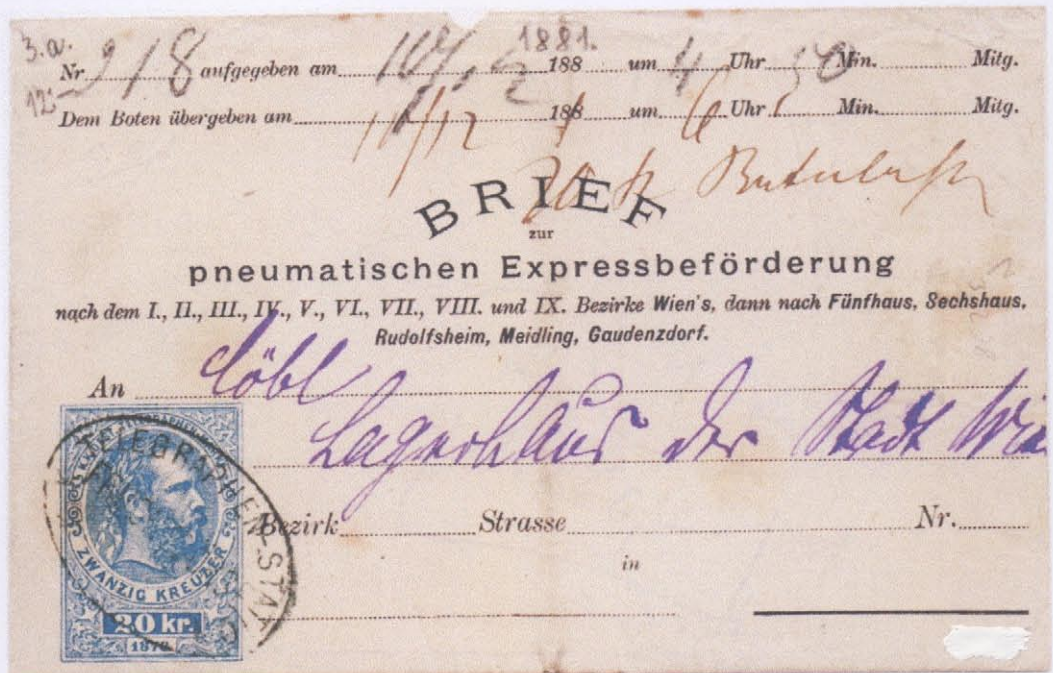 3.a. 1881.
Nr. 218 aufgegeben am 188 um 4 Uhr 50 Min. Mitg.
12
Dem Boten übergeben am 188 um 6 Uhr Min. Mitg.
BRIEF
zur
pneumatischen Expressbeförderung
nach dem I., II., III., IV., V., VI., VII., VIII. und IX. Bezirke Wien's, dann nach Fünfhaus, Sechshaus,
Rudolfsheim, Meidling, Gaudenzdorf.
An Löbl
Lagerhaus der Stadt Wie
TELEGRAPHEN-STATIO
Bezirk Strasse Nr.
ZWANZIG KREUZER
in
20 kr.
1873